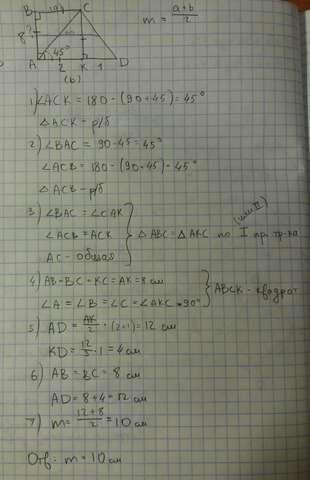 B (a) C
m = \frac{a+b}{2}
8
45°
A 2 K 1 D
(b)
1) ∠ACK = 180 - (90 + 45) = 45°
△ACK - р/б
2) ∠BAC = 90 - 45 = 45°
∠ACB = 180 - (90 + 45) - 45°
△ACB - р/б
3) ∠BAC = ∠CAK
∠ACB = ACK
AC - общая
} △ABC = △AKC по I пр. тр-ка
(или II)
4) AB = BC = KC = AK = 8 см
∠A = ∠B = ∠C = ∠AKC = 90°
} ABCK - квадрат
5) AD = \frac{AK}{2} · (2+1) = 12 см
KD = \frac{12}{3} · 1 = 4 см
6) AB = BC = 8 см
AD = 8 + 4 = 12 см
7) m = \frac{12+8}{2} = 10 см
Отв: m = 10 см